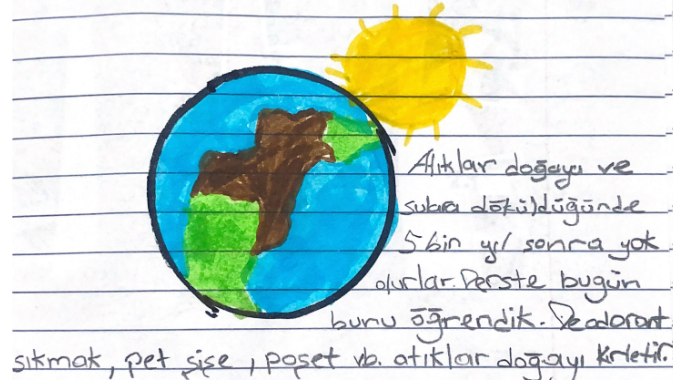 Atıklar doğayı ve
sulara döküldüğünde
5 bin yıl sonra yok
olurlar. Derste bugün
bunu öğrendik. Deodorant
sıkmak, pet şişe, poşet vb. atıklar doğayı kirletir.